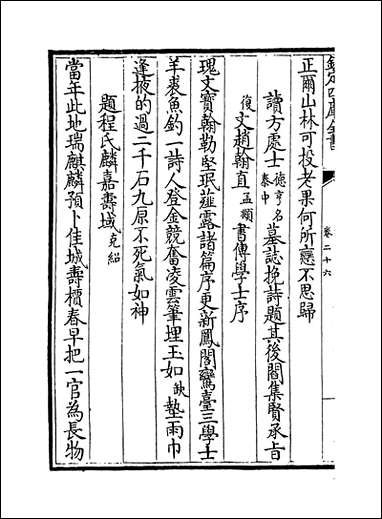 欽定四庫全書
卷二十六
正爾山林可投老果何所戀不思歸
讀方處士德亨名泰中墓誌挽詩題其後閻集賢承旨
復文趙翰直孟頫書傳學士序
瑰文寶翰勒堅珉薤露諸篇序更新鳳閣鸞臺三學士
羊裘魚釣一詩人登金競奮凌雲筆埋玉如缺墊雨巾
逢掖的過二千石九原不死氣如神
題程氏麟嘉壽域克紹
當年此地瑞麒麟預卜佳城壽櫝春早把一官為長物